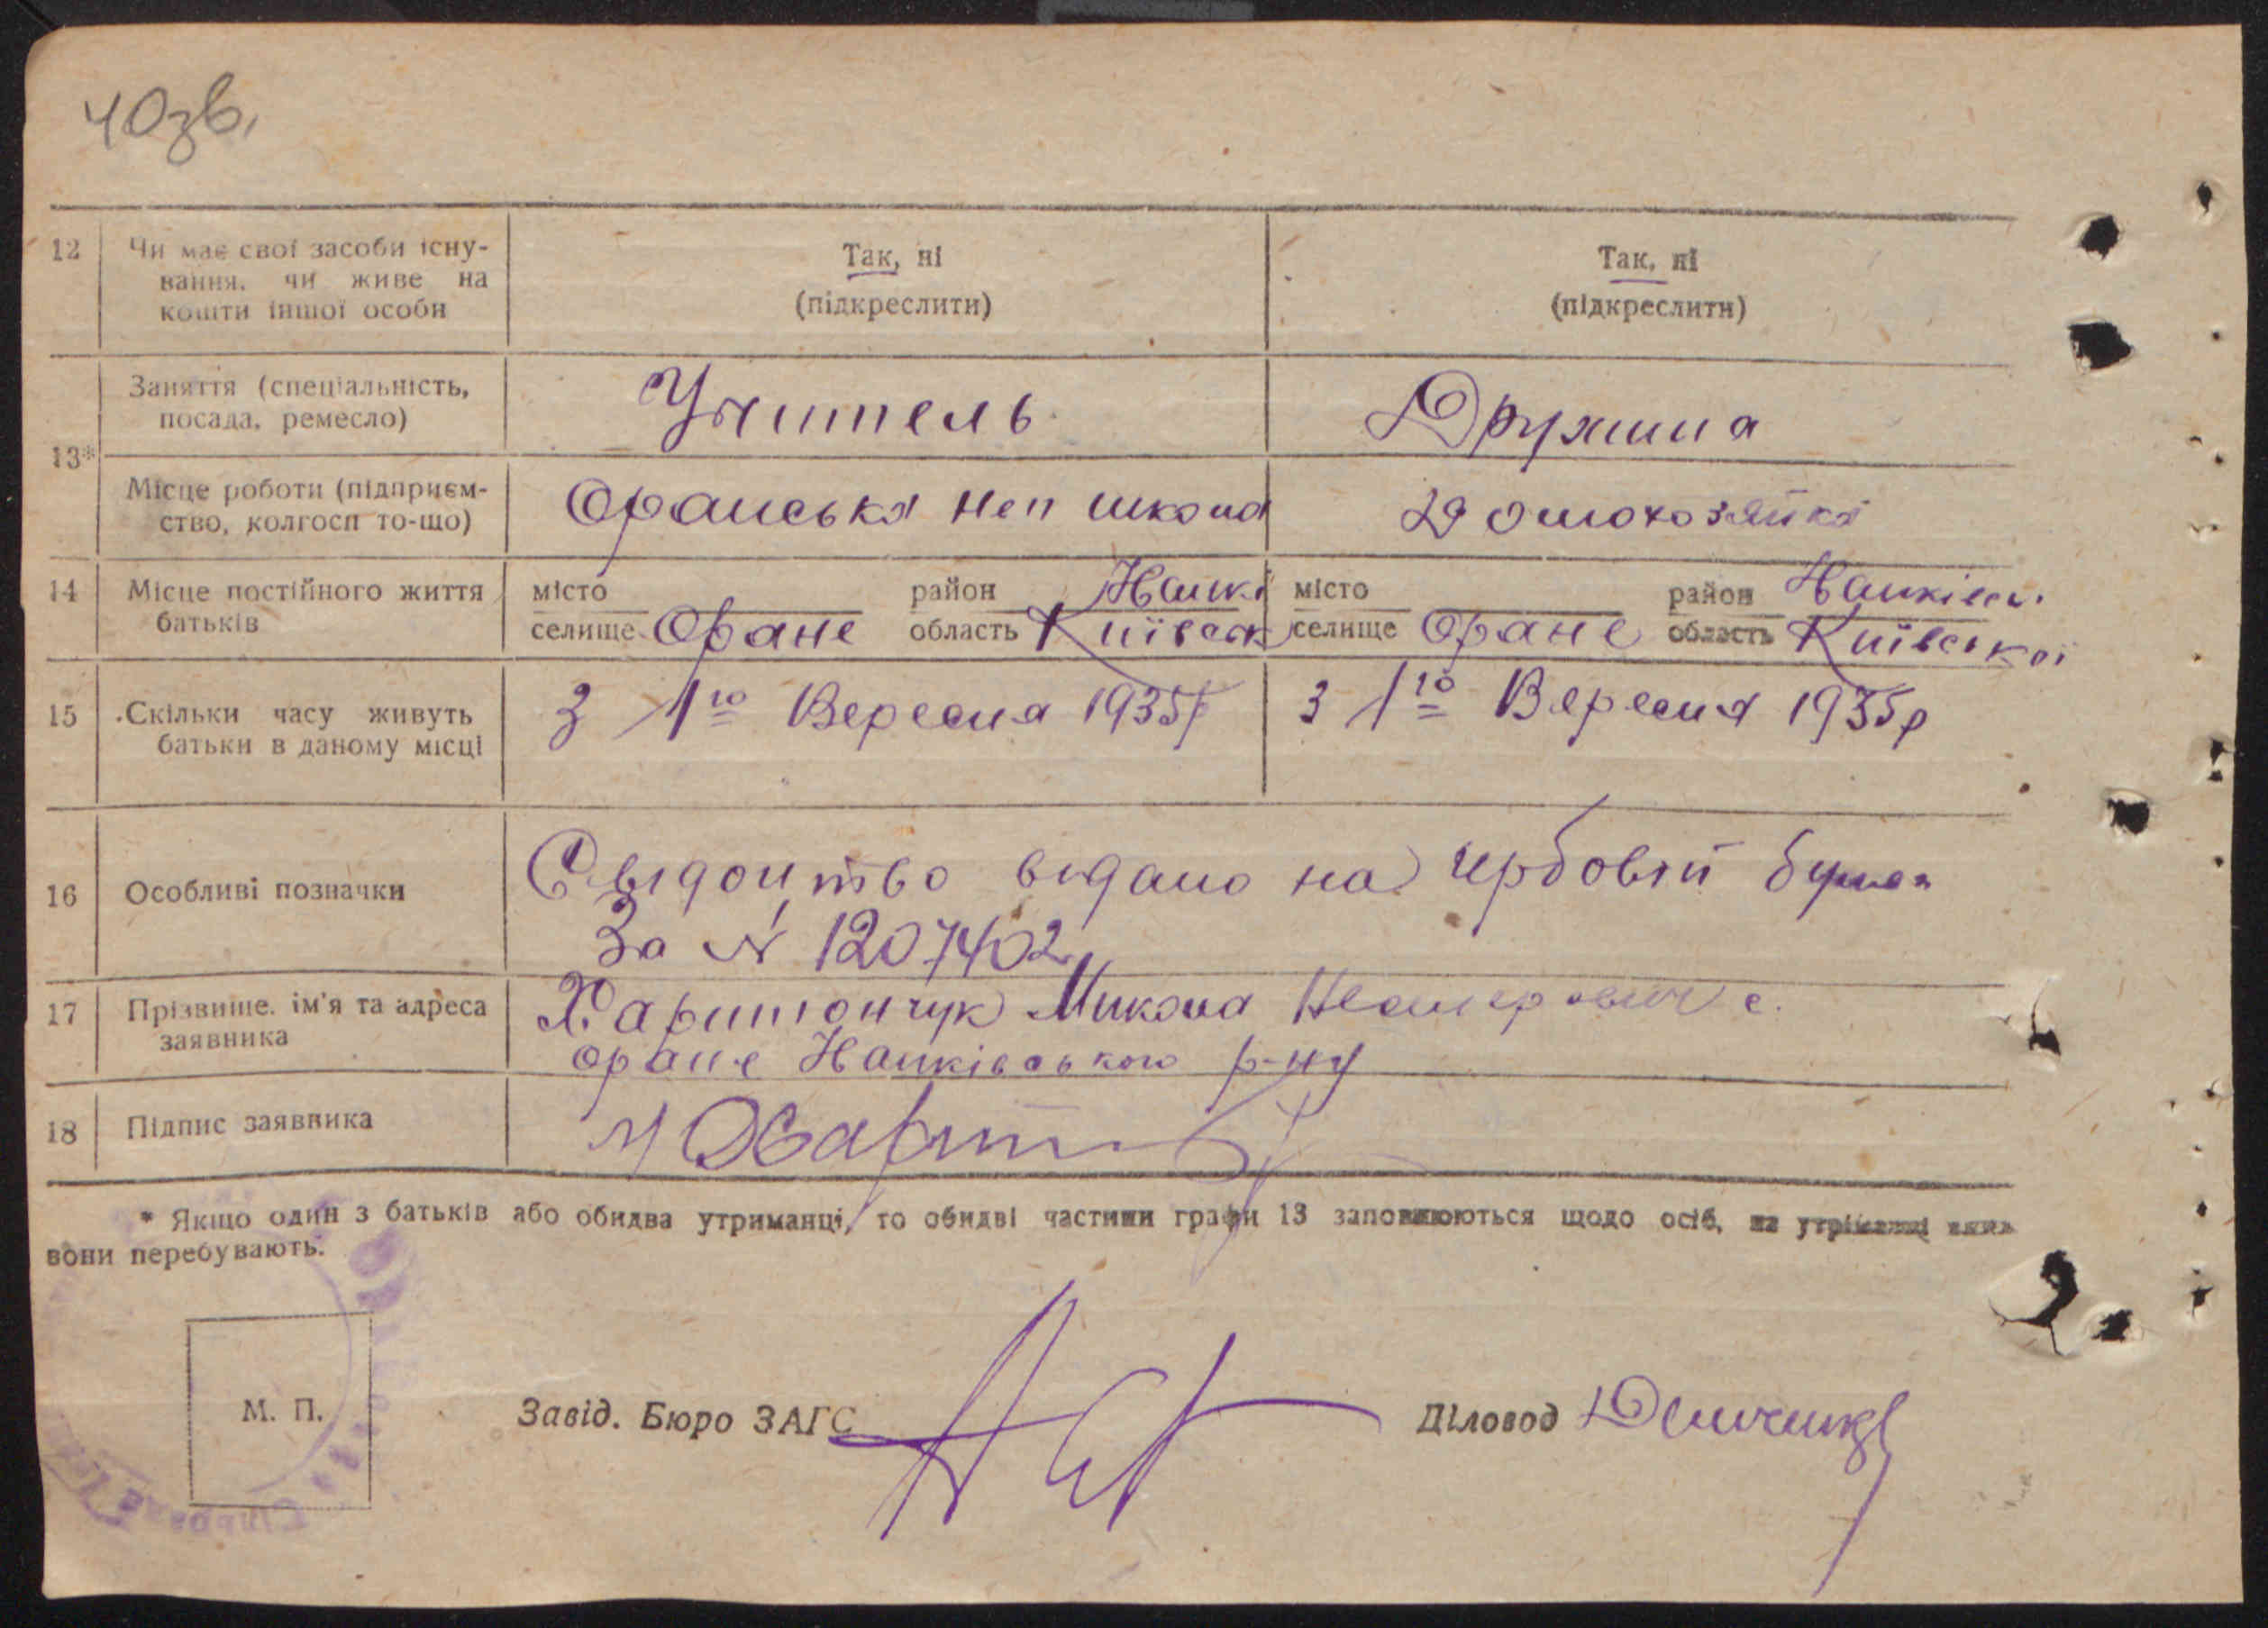 40зв.
12
Чи має свої засоби існу-
вання, чи живе на
кошти іншої особи
Так, ні
(підкреслити)
Так, ні
(підкреслити)
13*
Заняття (спеціальність,
посада, ремесло)
Учитель
Дружина
Місце роботи (підприєм-
ство, колгосп то-що)
Оранська неп школа
Домохозяйка
14
Місце постійного життя
батьків
місто
селище Оране
район
область Київськ
місто
селище Оране
район
область Київської
15
Скільки часу живуть
батьки в даному місці
З 1го Вересня 1935р
З 1го Вересня 1935р
16
Особливі позначки
Свідоцтво видано на гербовій
За № 1207402
17
Прізвище, ім'я та адреса
заявника
Харитончук Микола с.
Оране р-ну
18
Підпис заявника
* Якщо один з батьків або обидва утриманці, то обидві частини графи 13 заповнюються щодо осіб, на утриманні яких
вони перебувають.
М. П.
Завід. Бюро ЗАГС
Діловод